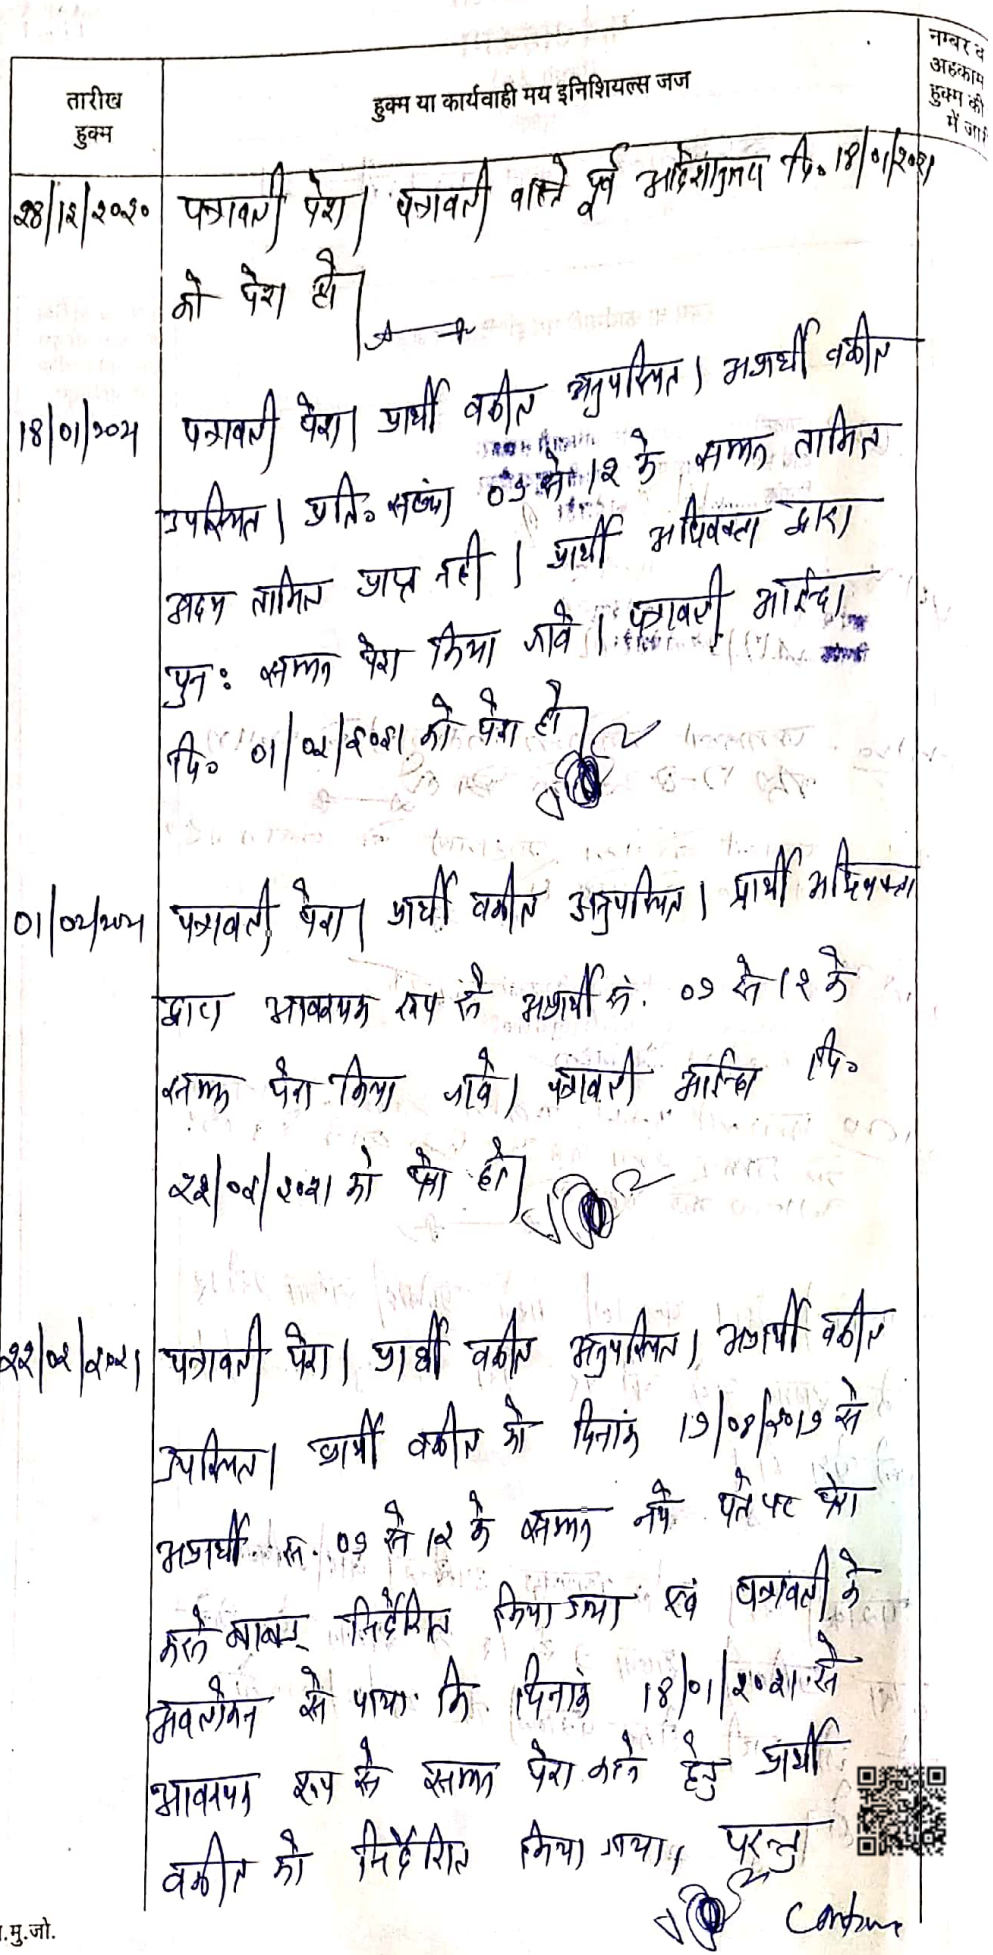 नम्बर व
अहकाम
हुक्म की
में जारी
तारीख
हुक्म
हुक्म या कार्यवाही मय इनिशियल्स जज
28/12/2020 पत्रावली पेश। पत्रावली वास्ते पूर्व आदेशानुसार दि॰ 18/01/2021
को पेश हो।
18/01/2021 पत्रावली पेश। प्रार्थी वकील अनुपस्थित। अप्रार्थी वकील
उपस्थित। प्रति॰ संख्या 09 से 12 के सम्मन तामिल
अदम तामिल प्राप्त नहीं। प्रार्थी अधिवक्ता द्वारा
पुनः सम्मन पेश किया जावे। पत्रावली आईन्दा
दि॰ 01/02/2021 को पेश हो।
01/02/2021 पत्रावली पेश। प्रार्थी वकील अनुपस्थित। प्रार्थी अधिवक्ता
द्वारा आवश्यक रूप से अप्रार्थी सं. 09 से 12 के
सम्मन पेश किया जावे। पत्रावली आईन्दा दि॰
22/02/2021 को पेश हो।
22/02/2021 पत्रावली पेश। प्रार्थी वकील अनुपस्थित। अप्रार्थी वकील
उपस्थित। प्रार्थी वकील को दिनांक 19/08/2019 से
अप्रार्थी सं. 09 से 12 के सम्मन नये पते पर पेश
करने बाबत् निर्देशित किया गया एवं पत्रावली के
अवलोकन से पाया कि दिनांक 18/01/2021 से
आवश्यक रूप से सम्मन पेश करने हेतु प्रार्थी
वकील को निर्देशित किया गया। परन्तु
Continue
.मु.जो.